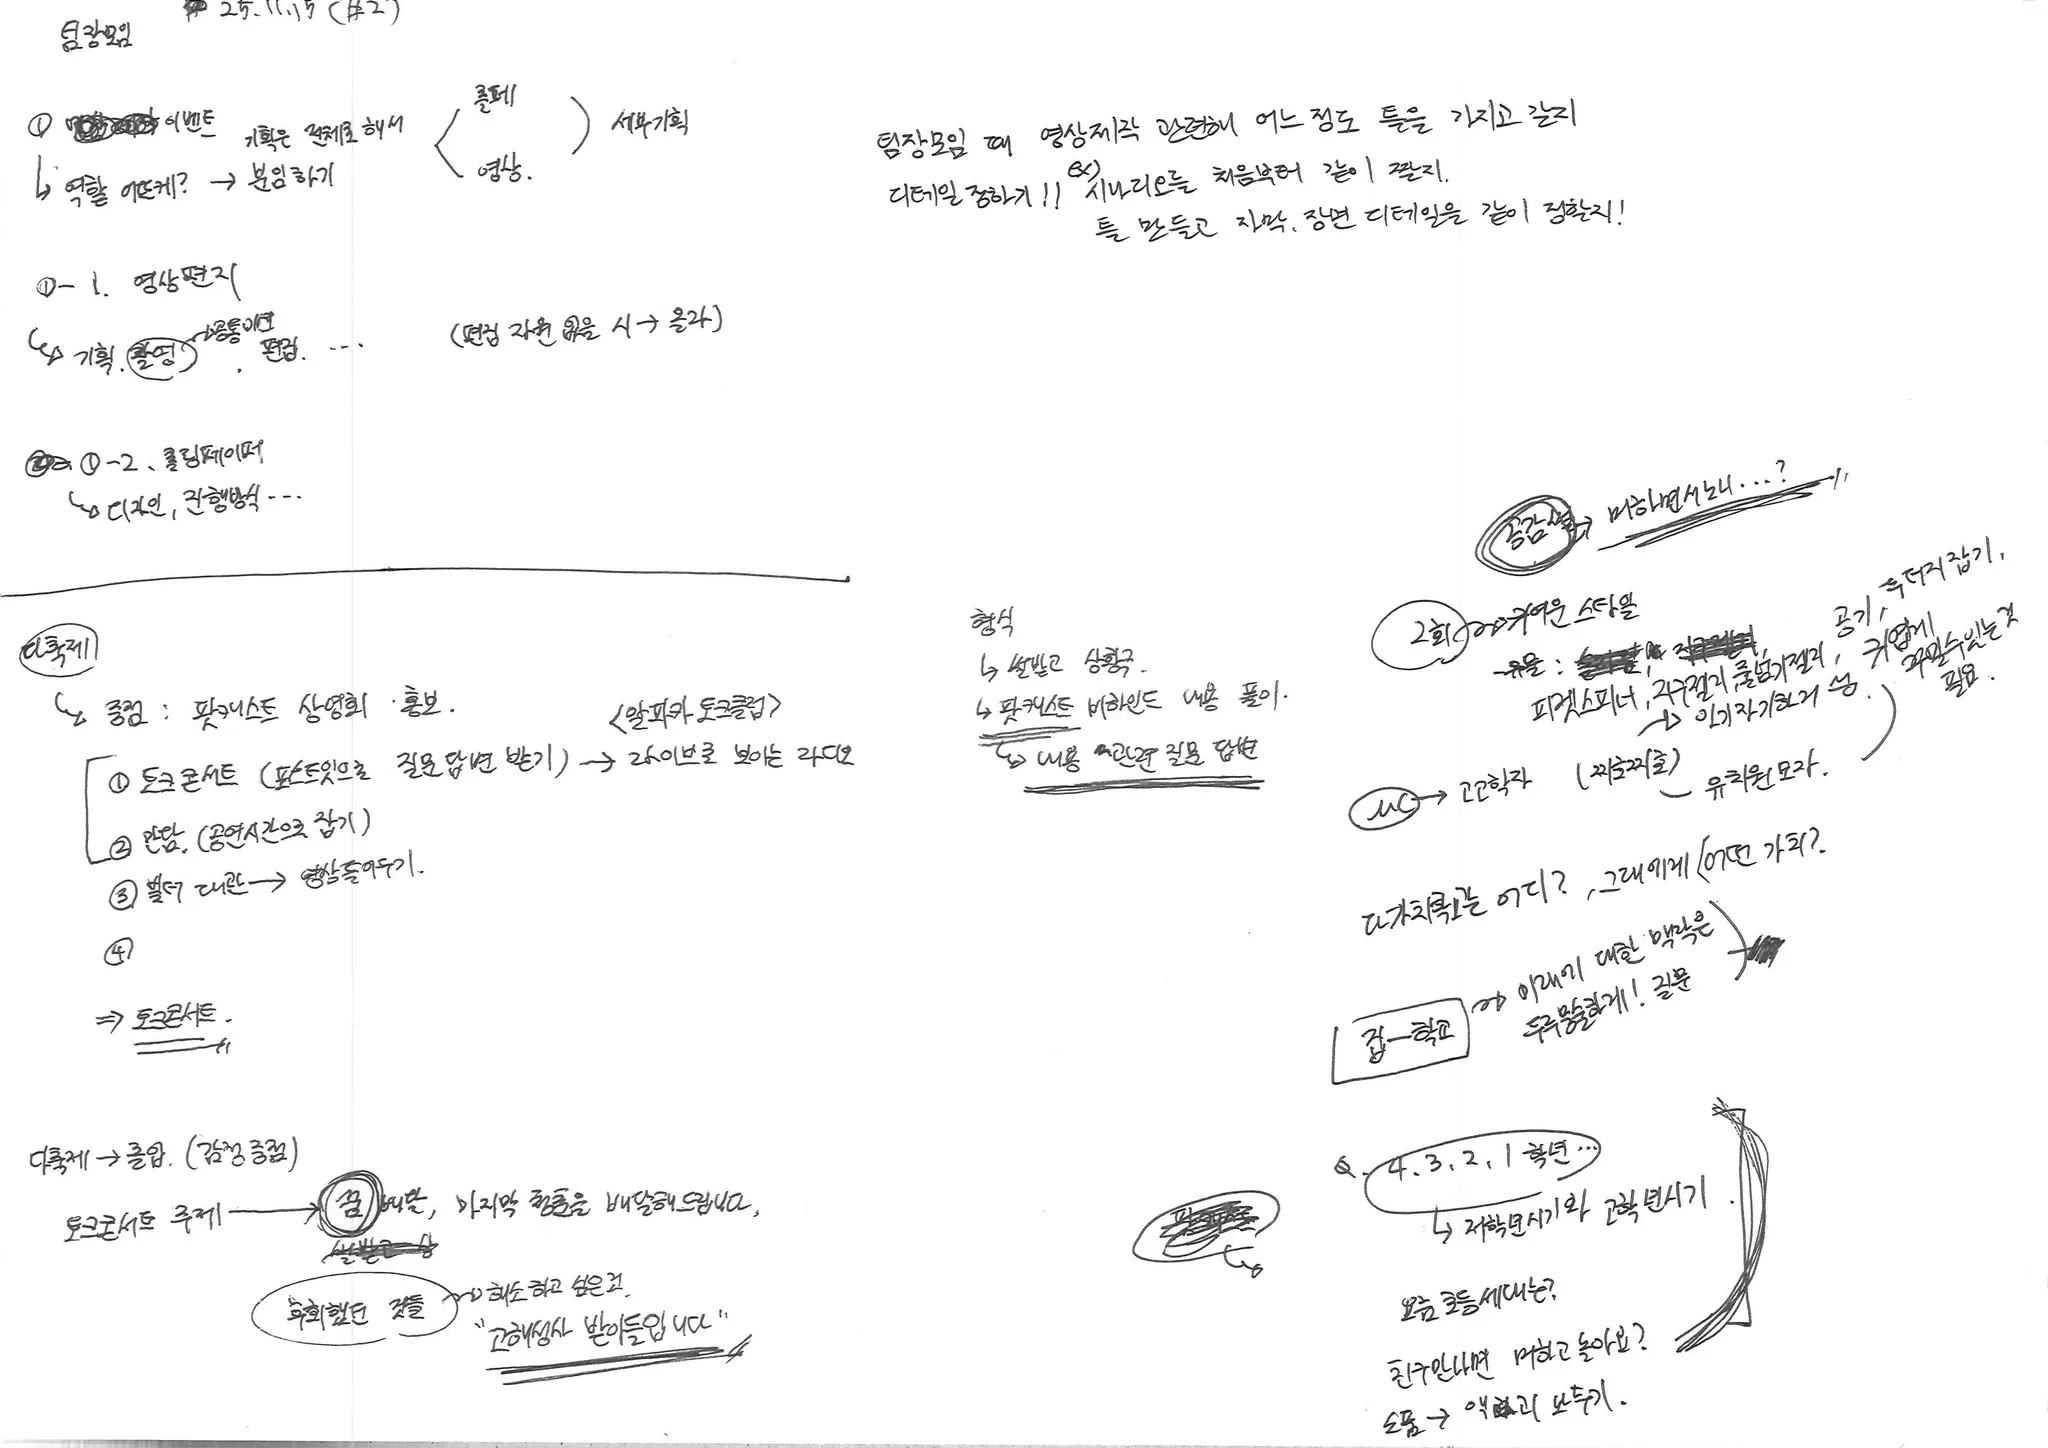 25.11.15 (#2)
팀장모임
① 이벤트
기획은 전체로 해서
↳ 역할 어떠케? → 분임하기
롤페
영상.
세부기획
①-1. 영상편지
↳ 기획. 촬영 편집. ...
(편집 자원 없을 시 → 올라)
①-2. 롤링페이퍼
↳ 디자인, 진행방식...
팀장모임 때 영상제작 관련해 어느정도 틀을 가지고 갈지
디테일 정하기!! ex) 시나리오를 처음부터 같이 짤지.
틀 만들고 자막, 장면 디테일을 같이 정할지!
다확제
↳ 중점: 팟캐스트 상영회·홍보.
<알파카 토크클럽>
① 토크콘서트 (포스트잇으로 질문답변 받기) → 라이브로 보이는 라디오
② 만담. (공연시간으로 잡기)
③ 빌더 대관 → 영상틀어두기.
④
⇒ 토크콘서트.
다확제 → 졸업. (감정중점)
토크콘서트 주제 → 꿈 배달, 마지막 청춘을 배달해드립니다.
후회했던 것들 → 해소하고 싶은것.
"고해성사 받아들입니다"
형식
↳ 쌀밭고 상황극.
↳ 팟캐스트 비하인드 내용 풀이.
↳ 내용 관련 질문 답변
공감 → 머하면서노니...?
2회 → 귀여운 스타일
유물:
피젯스피너, 지우절기, 줄넘기절기, 공기, 두더지잡기,
→ 인기자기하거나 귀엽게 꾸밀수있는것 필요.
MC → 고고학자 (찌호찌호)
유치원모자.
다가치학교는 어디?, 그대에게 (어떤 가치?
집-학교 → 미래에 대한 맥락은
두루뭉술하게! 질문
Q. 4.3.2.1학년...
↳ 저학년시기와 고학년시기.
요즘초등세대는?
친구만나면 머하고놀아요?
소품 → 액괴 보두기.